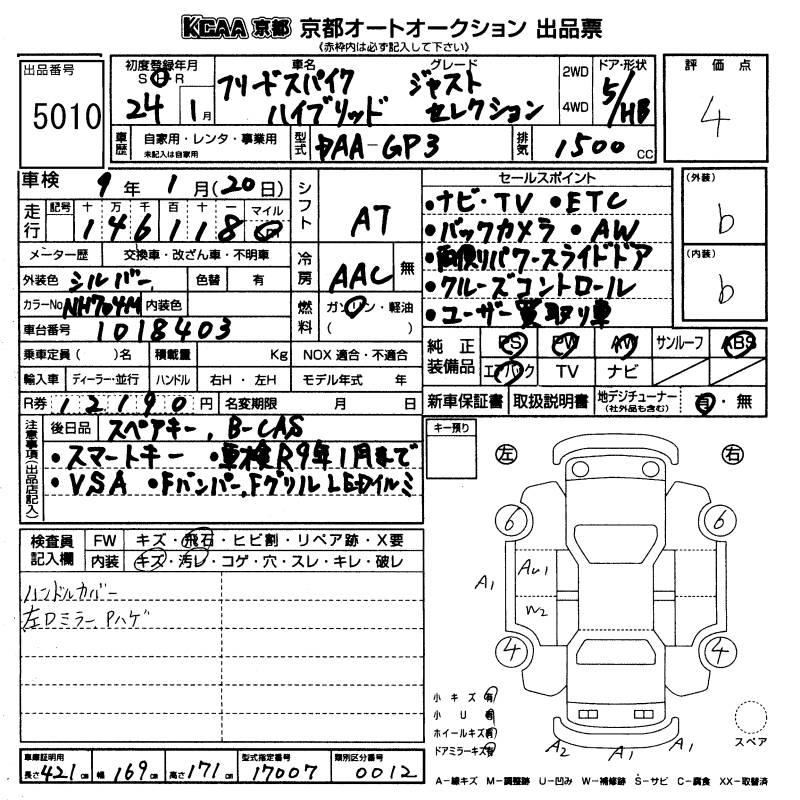 KCAA 京都 京都オートオークション 出品票
《赤枠内は必ず記入して下さい》
出品番号
5010
初度登録年月
S H R
24 1月
車名
フリードスパイク
ハイブリッド
グレード
ジャスト
セレクション
2WD
4WD
ドア・形状
5/HB
評価点
4
車歴
自家用・レンタ・事業用
未記入は自家用
型式
DAA-GP3
排気
1500 CC
車検 9年 1月(20日)
走行
記号 十 万 千 百 十 一 マイル
1 4 6 1 1 8
シフト
AT
セールスポイント
・ナビ・TV ・ETC
・バックカメラ ・AW
・両側パワースライドドア
・クルーズコントロール
・ユーザー買取り車
(外装)
b
(内装)
b
メーター歴 交換車・改ざん車・不明車
外装色 シルバー 色替 有
冷房
AAC 無
カラーNo NH704M 内装色
車台番号 1018403
燃料
ガソリン・軽油
( )
乗車定員( )名 積載量 Kg NOX 適合・不適合
輸入車 ディーラー・並行 ハンドル 右H・左H モデル年式 年
R券 12190円 名変期限 月 日
純正装備品
PS PW AW サンルーフ ABS
エアバック TV ナビ
新車保証書 取扱説明書 地デジチューナー (社外品も含む) 有・無
注意事項(出品店記入)
後日品 スペアキー、B-CAS
・スマートキー ・車検R9年1月まで
・VSA ・Fバンパー、Fグリル LEDイルミ
キー預り
左 右
検査員記入欄
FW キズ・飛石・ヒビ割・リペア跡・X要
内装 キズ・汚レ・コゲ・穴・スレ・キレ・破レ
ハンドルカバー
左Dミラー Pハゲ
6 6
A1 AU1
W2
4 4
小キズ有
小U有
ホイールキズ有
ドアミラーキズ有
A2 A1 A1
スペア
車庫証明用
長さ421cm 幅169cm 高さ171cm
型式指定番号
17007
類別区分番号
0012
A-線キズ M-調整跡 U-凹み W-補修跡 S-サビ C-腐食 XX-取替済